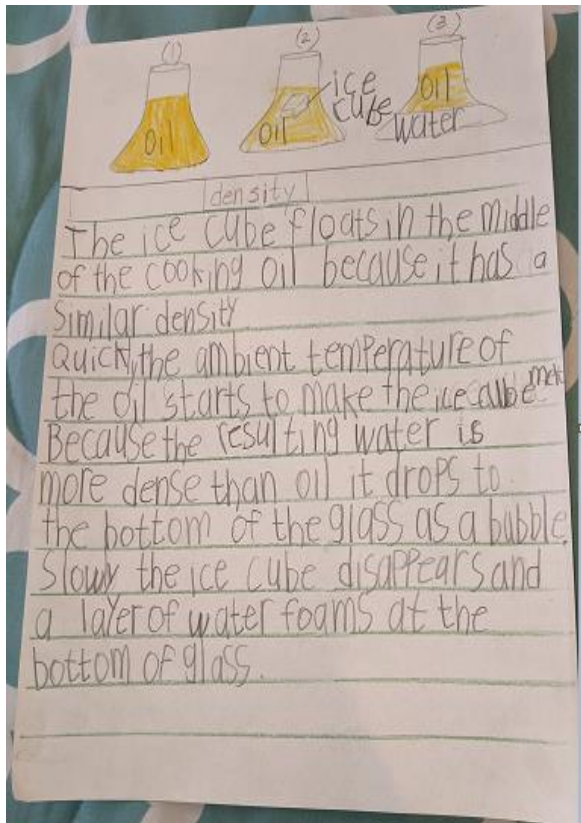 (1) (2) (3)
oil
ice
cube
oil
oil
water
density
The ice cube floats in the middle
of the cooking oil because it has a
similar density
Quickly the ambient temperature of
the oil starts to make the ice cube melt
Because the resulting water is
more dense than oil it drops to
the bottom of the glass as a bubble
Slowy the ice cube disappears and
a layer of water foams at the
bottom of glass.